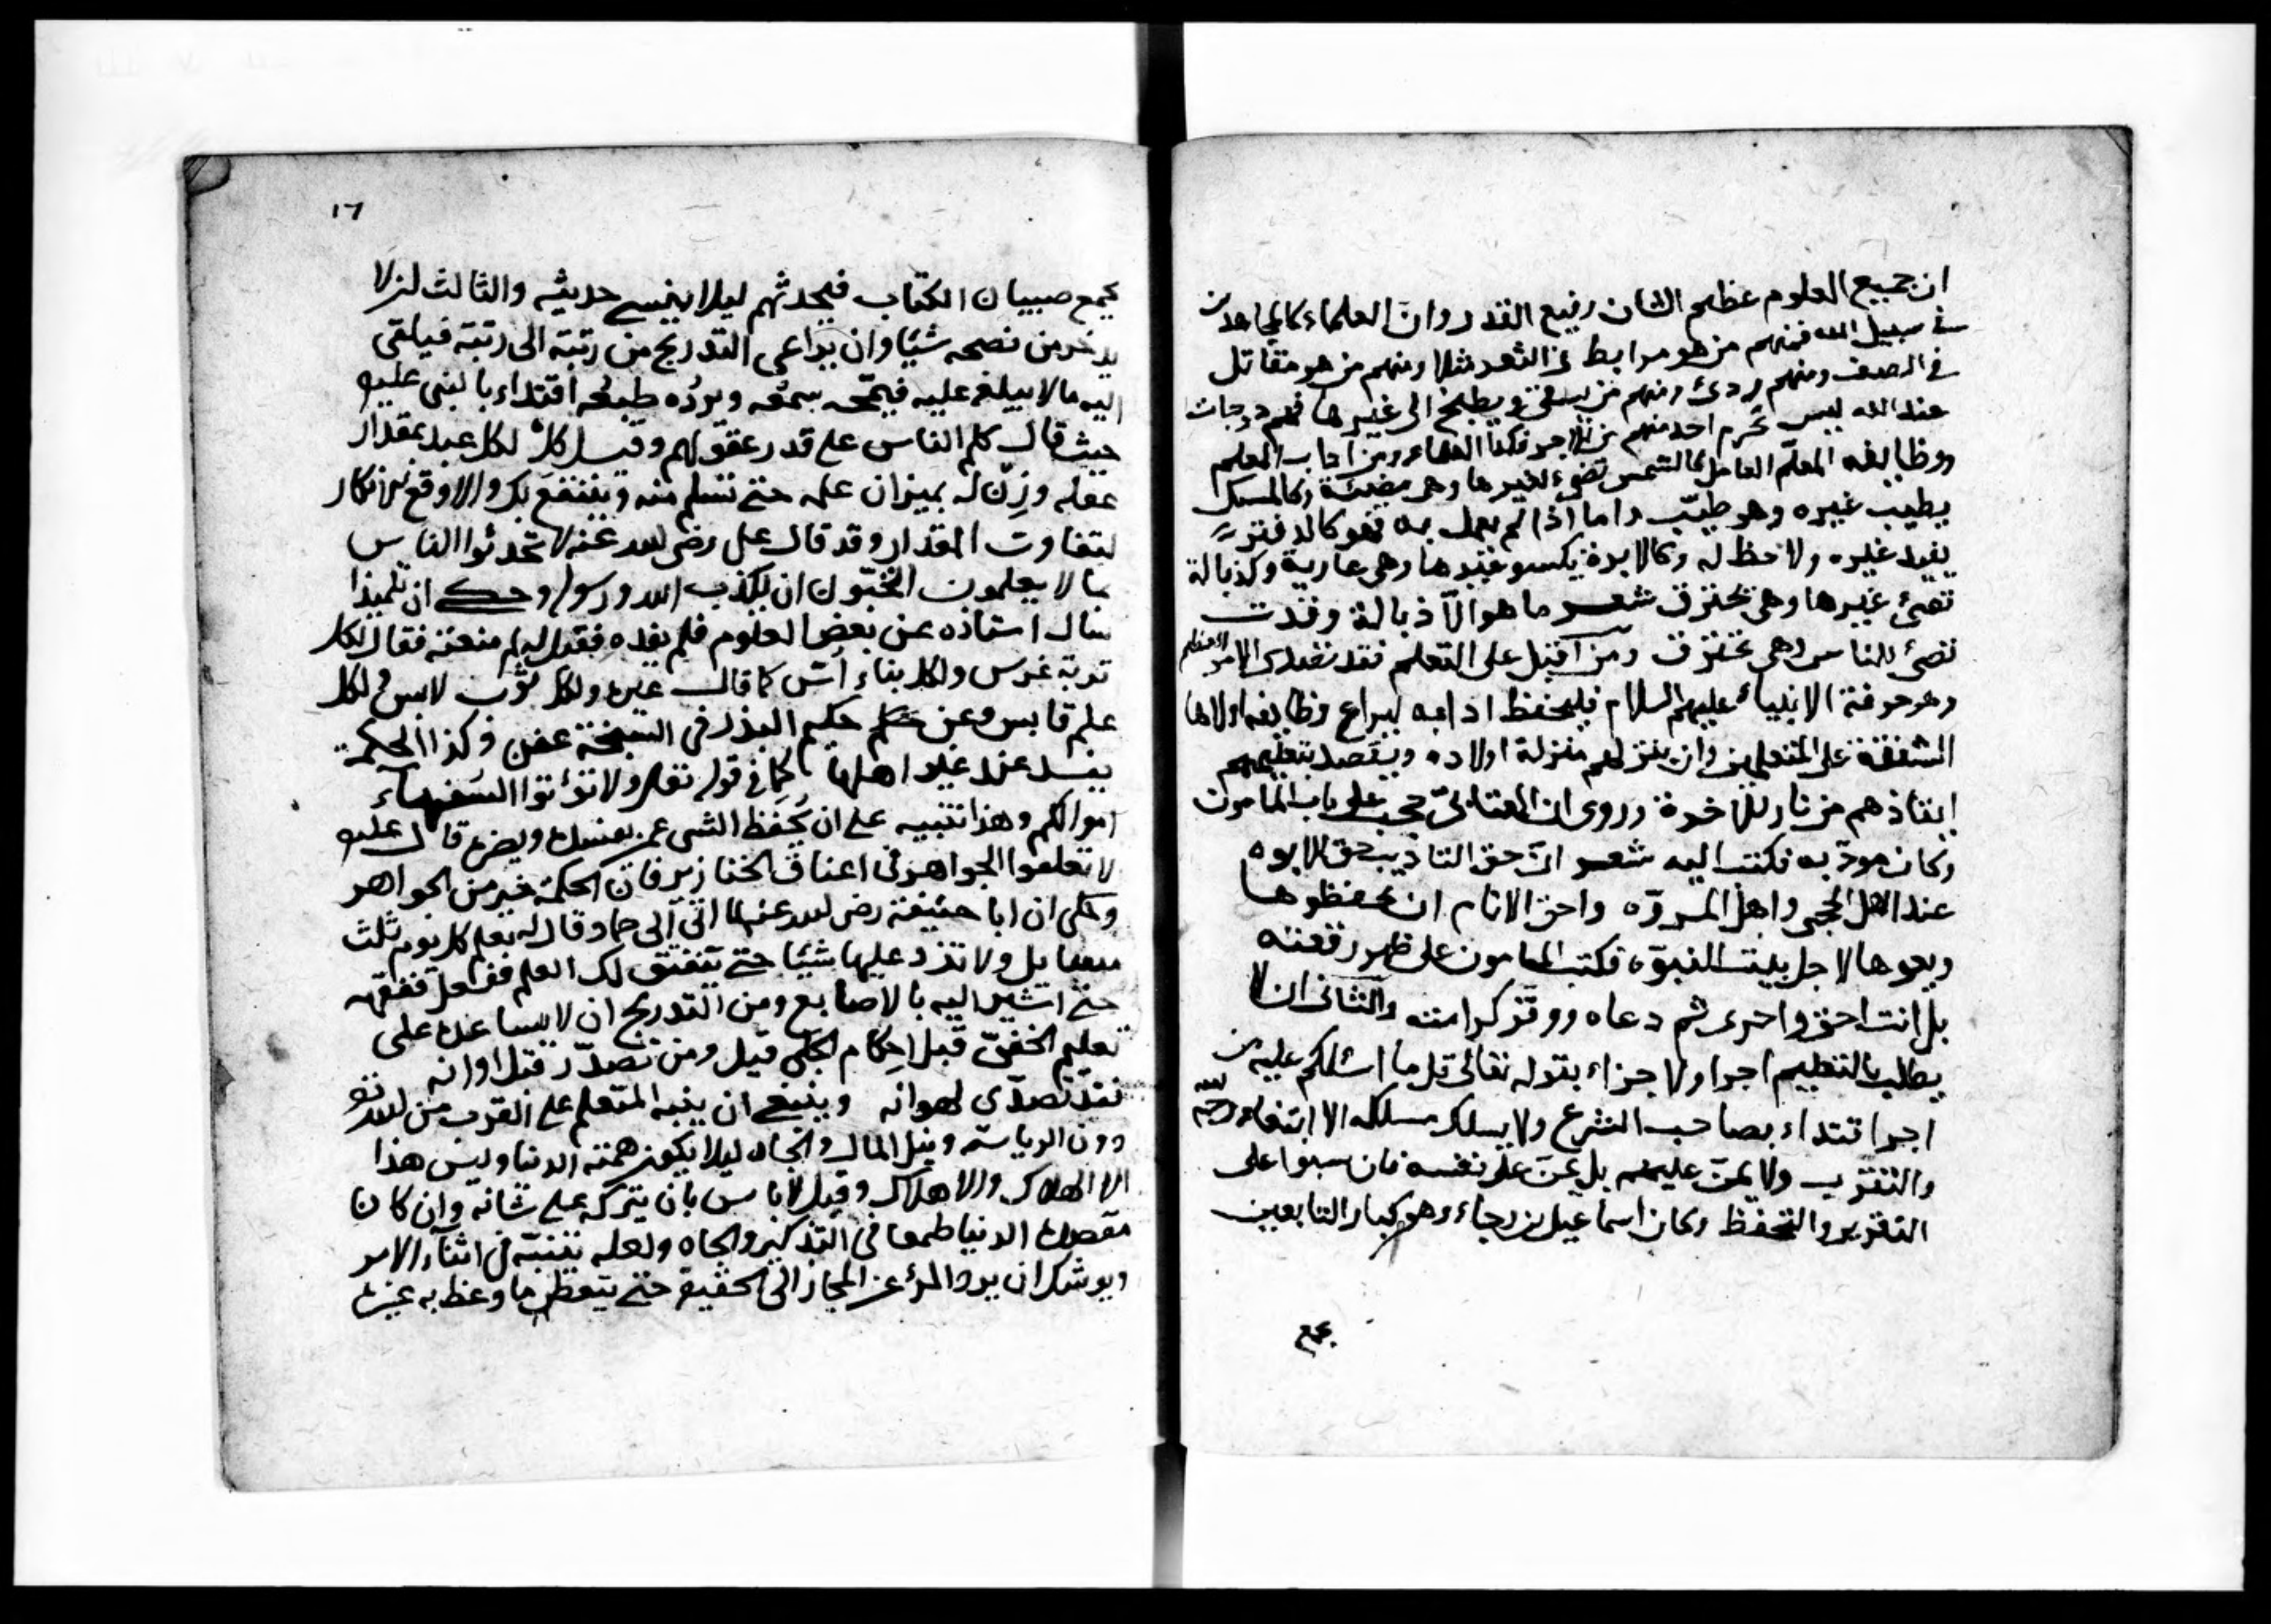 ان جميع العلوم عظيم الشان رفيع القدر وان العلماء كالمجاهدين
في سبيل الله فمنهم من هو مرابط في الثغر مثلا ومنهم من هو مقاتل
في الصف ومنهم ردئ ومنهم من يسقى ويطبخ الى غيرها فلهم درجات
عند الله ليس يحرم احد منهم من الاجر فكذا العلماء ومن اداب المعلم
ووظايفه المعلم العامل كالشمس تضئ لغيرها وهى مضيئة وكالمسك
يطيب غيره وهو طيب واما اذا لم يعمل به فهو كالدفتر
يفيد غيره ولا حظ له وكالابرة يكسو غيرها وهى عارية وكذبالة
تضئ غيرها وهى تحترق شعر ما هو الا ذبالة وقدت
تضئ للناس وهى تحترق ومن اقبل على التعلم فقد تقلد الامر العظيم
وهو حرفة الانبياء عليهم السلام فليحفظ ادابه ليراع وظايفه اولاها
الشفقة على المتعلمين وان ينزلهم منزلة اولاده ويقصد بتعليمهم
انقاذهم من نار الاخرة وروى ان العتابى حجب على باب المامون
وكان مودبه فكتب اليه شعر ان حق التاديب حق الابوه
عند اهل الحجى واهل المروه واحق الانام ان يحفظوها
ويعوها لاجل بيت النبوه فكتب المامون على ظهر رقعته
بل انت احق واحرى ثم دعاه ووقر كرامته والثانى ان لا
يطلب بالتعليم اجرا ولا جزاء بقوله تعالى قل ما اسئلكم عليه من
اجر اقتداء بصاحب الشرع ولا يسلك مسلكه الا ابتغاء وجه الله
والتقرب ولا يمن عليهم بل يمن على نفسه فان سبوا على
التقرير والتحفظ وكان اسماعيل بن رجاء وهو كبار التابعين
يجمع
١٦
يجمع صبيان الكتاب فيحدثهم ليلا ينسى حديثه والثالث ان لا
يدخر من نصحه شيئا وان يراعى التدريج من رتبة الى رتبة فيلقى
اليه ما لا يبلغ عليه فيمجه سمعه ويرده طبعه اقتداء بالنبى عليه
حيث قال كلم الناس على قدر عقولهم وقيل كل لكل عبد بمقدار
عقله وزن له بميزان علمه حتى تسلم منه وينتفع بك والا وقع الانكار
لتفاوت المقدار وقد قال على رضى الله عنه لا تحدثوا الناس
بما لا يعلمون اتحبون ان يكذب الله ورسوله وحكى ان تلميذا
سال استاذه عن بعض العلوم فلم يفده فقيل له لم منعته فقال لكل
تربة غرس ولكل بناء اس كما قال غيره ولكل ثوب لابس ولكل
علم قابس وعن حكيم البذر في السبخة عفن وكذا الحكمة
يفسد عند غير اهلها كما في قوله تعالى ولا تؤتوا السفهاء
اموالكم وهذا تنبيه على ان يحفظ الشى عمن يفسده ويضره قال عليه
لا تعلقوا الجواهر في اعناق الخنازير فان الحكمة خير من الجواهر
وحكى ان ابا حنيفة رضى الله عنه لما اتى الى حماد قال له تعلم كل يوم ثلث
مسايل ولا تزد عليها شيئا حتى يتفتق لك العلم ففعل ففقه
حتى اشير اليه بالاصابع ومن التدريج ان لا يساعده على
تعليم الخفى قبل احكام الجلى قيل ومن تصدر قبل اوانه
فقد تصدى لهوانه وينبغى ان ينبه المتعلم على القرب من الله تعالى
دون الرياسة ونيل المال والجاه ليلا يكون همته الدنيا وليس هذا
الا الهلاك والاهلاك وقيل لا باس بان يتركه على شانه وان كان
مقصده الدنيا طمعا في التذكير والجاه ولعله يتنبه في اثناء الامر
ويوشك ان يرد المرؤ عن المجاز الى الحقيقة حتى يتعظ بما وعظ به غيره